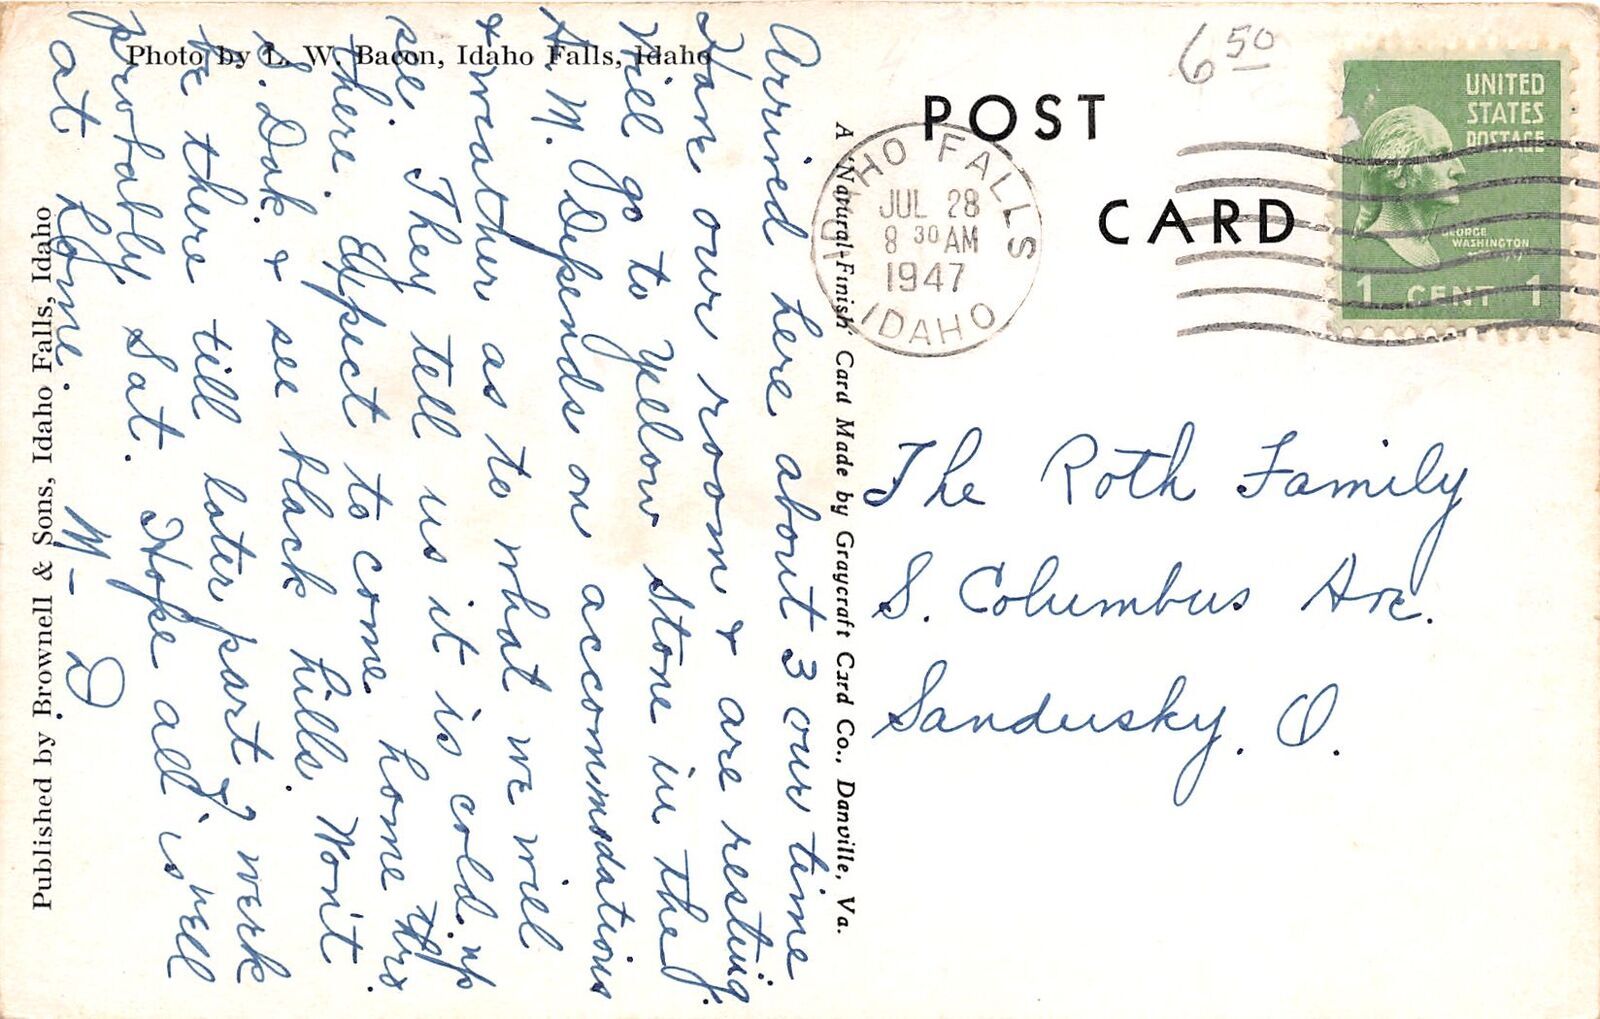 Photo by L. W. Bacon, Idaho Falls, Idaho
Published by Brownell & Sons, Idaho Falls, Idaho
Arrived here about 3 our time
Have our room & are resting.
Will go to Yelow Stone in the
A. M. Depends on accommodations
& weather as to what we will
see. They tell us it is cold up
there. Expect to come home thro
S. Dak. & see black hills. Won't
be there till later part of week
probably Sat. Hope all is well
at home. M - D
A 'Natural-Finish' Card Made by Graycraft Card Co., Danville, Va.
POST
CARD
6 50
IDAHO FALLS
JUL 28
8 30 AM
1947
IDAHO
UNITED
STATES
POSTAGE
GEORGE
WASHINGTON
1 CENT 1
The Roth Family
S. Columbus Ave.
Sandusky, O.